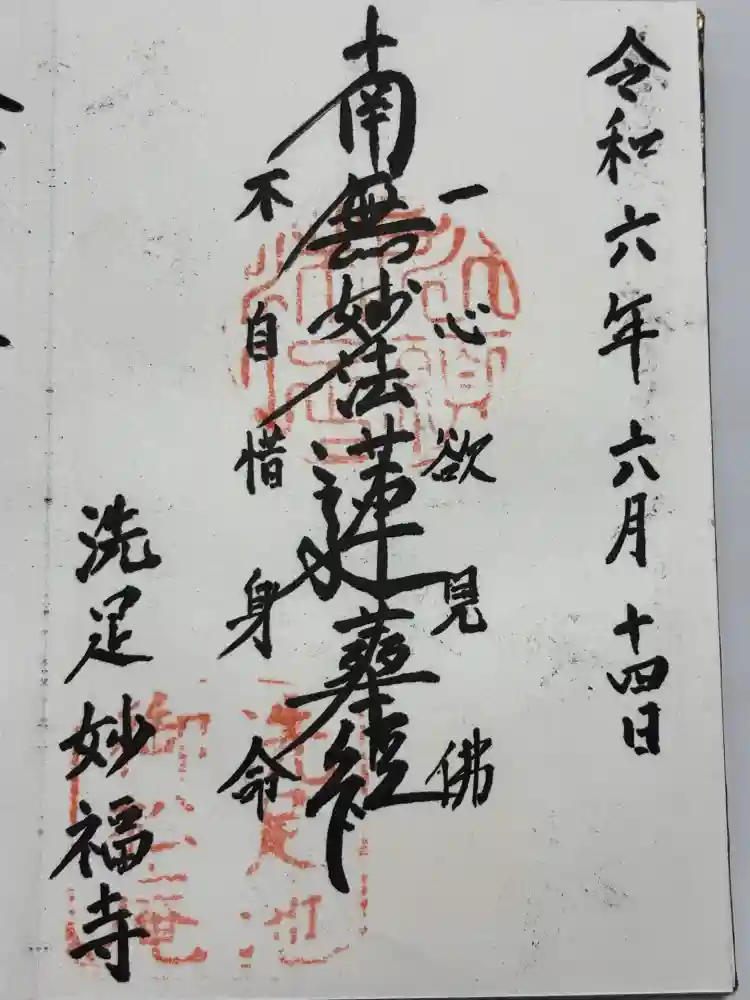 令和六年六月十四日
一心欲見佛
南無妙法蓮華経
不自惜身命
洗足妙福寺
洗足池